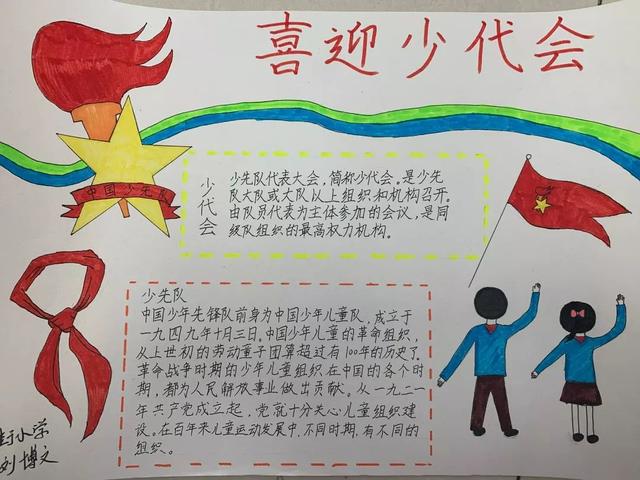 喜迎少代会
中国少先队
少代会
少先队代表大会，简称少代会。是少先
队大队或大队以上组织和机构召开。
由队员代表为主体参加的会议，是同
级队组织的最高权力机构。
少先队
中国少年先锋队前身为中国少年儿童队，成立于
一九四九年十月三日。中国少年儿童的革命组织，
从上世初的劳动童子团算超过有100年的历史了。
革命战争时期的少年儿童组织在中国的各个时
期，都为人民解放事业做出贡献。从一九二一
年共产党成立起，党就十分关心儿童组织建
设。在百年来儿童运动发展中，不同时期，有不同的
组织。
小学
刘博文